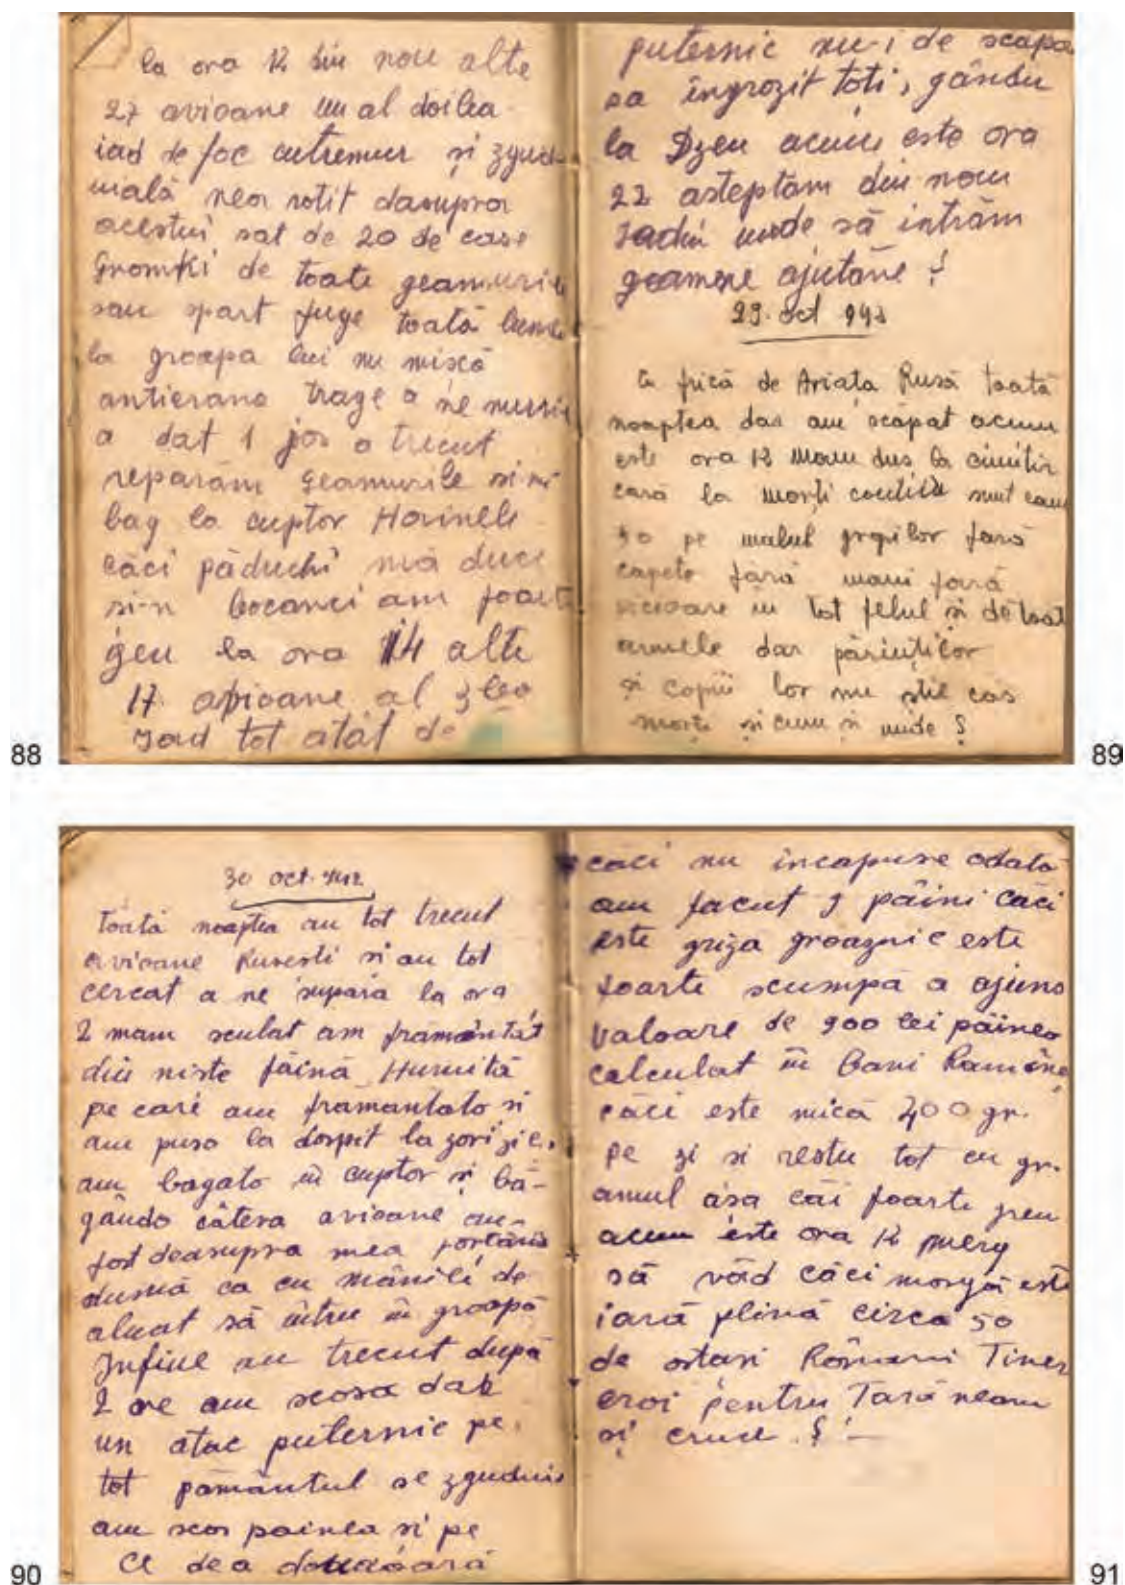 la ora 12 din nou alte
27 avioane un al doilea
iad de foc cutremur și zgud-
uială neor rotit dasupra
acestui sat de 20 de case
Gromki de toate geamurile
sau spart fuge toată lumea
la groapa lui nu mișcă
antierana trage a ne
a dat 1 jos a trecut
reparăm geamurile si-mi
bag la cuptor Hainele
căci păduchi mă duce
si-n bocanci am foarte
greu la ora 14 alte
17 avioane al 3 lea
Jad tot atât de
88
puternic nu-i de scapa
sa îngrozit toti, gându
la Dzeu acum este ora
22 asteptam din nou
Iadu unde să intrăm
geamene ajutăne !
29. oct 942
Cu frică de Ariata Rusă toată
noaptea dar am scăpat acum
este ora 12 mam dus la cimitir
cară la morți sunt cam
50 pe malul gropilor fară
capete fară maini fară
picioare in tot felul și de toat
armele dar păriuților
și copii lor nu știe cas
morți și cum și unde ?
89
30 oct. 942
Toată noaptea au tot trecut
avioane Rusesti si au tot
cercat a ne supara la ora
2 mam sculat am framântat
din niste făină Humită
pe care am framantato si
am puso la dospit la zori zile,
am bagato in cuptor și bă-
gândo câteva avioane au
fost deasupra mea
dumă ca cu mânili de
aluat să intru in groapă
Infine au trecut după
2 ore am scosa dar
un atac puternic pe
tot pamântul se zguduie
am scos painea si pe
ce dea douaoară
90
căci nu incapuse odată
am facut 9 pâini căci
este griza groaznic este
foarte scumpă a ajuns
valoare de 900 lei pâinea
calculat in Bani Român
căci este mică 400 gr.
pe zi si restu tot cu gr.
amul asa căi foarte greu
acum este ora 12 merg
să văd căci morgă este
iară plină circa 50
de ostasi Români Tiner
eroi pentru Tară neam
și cruce. ! –
91